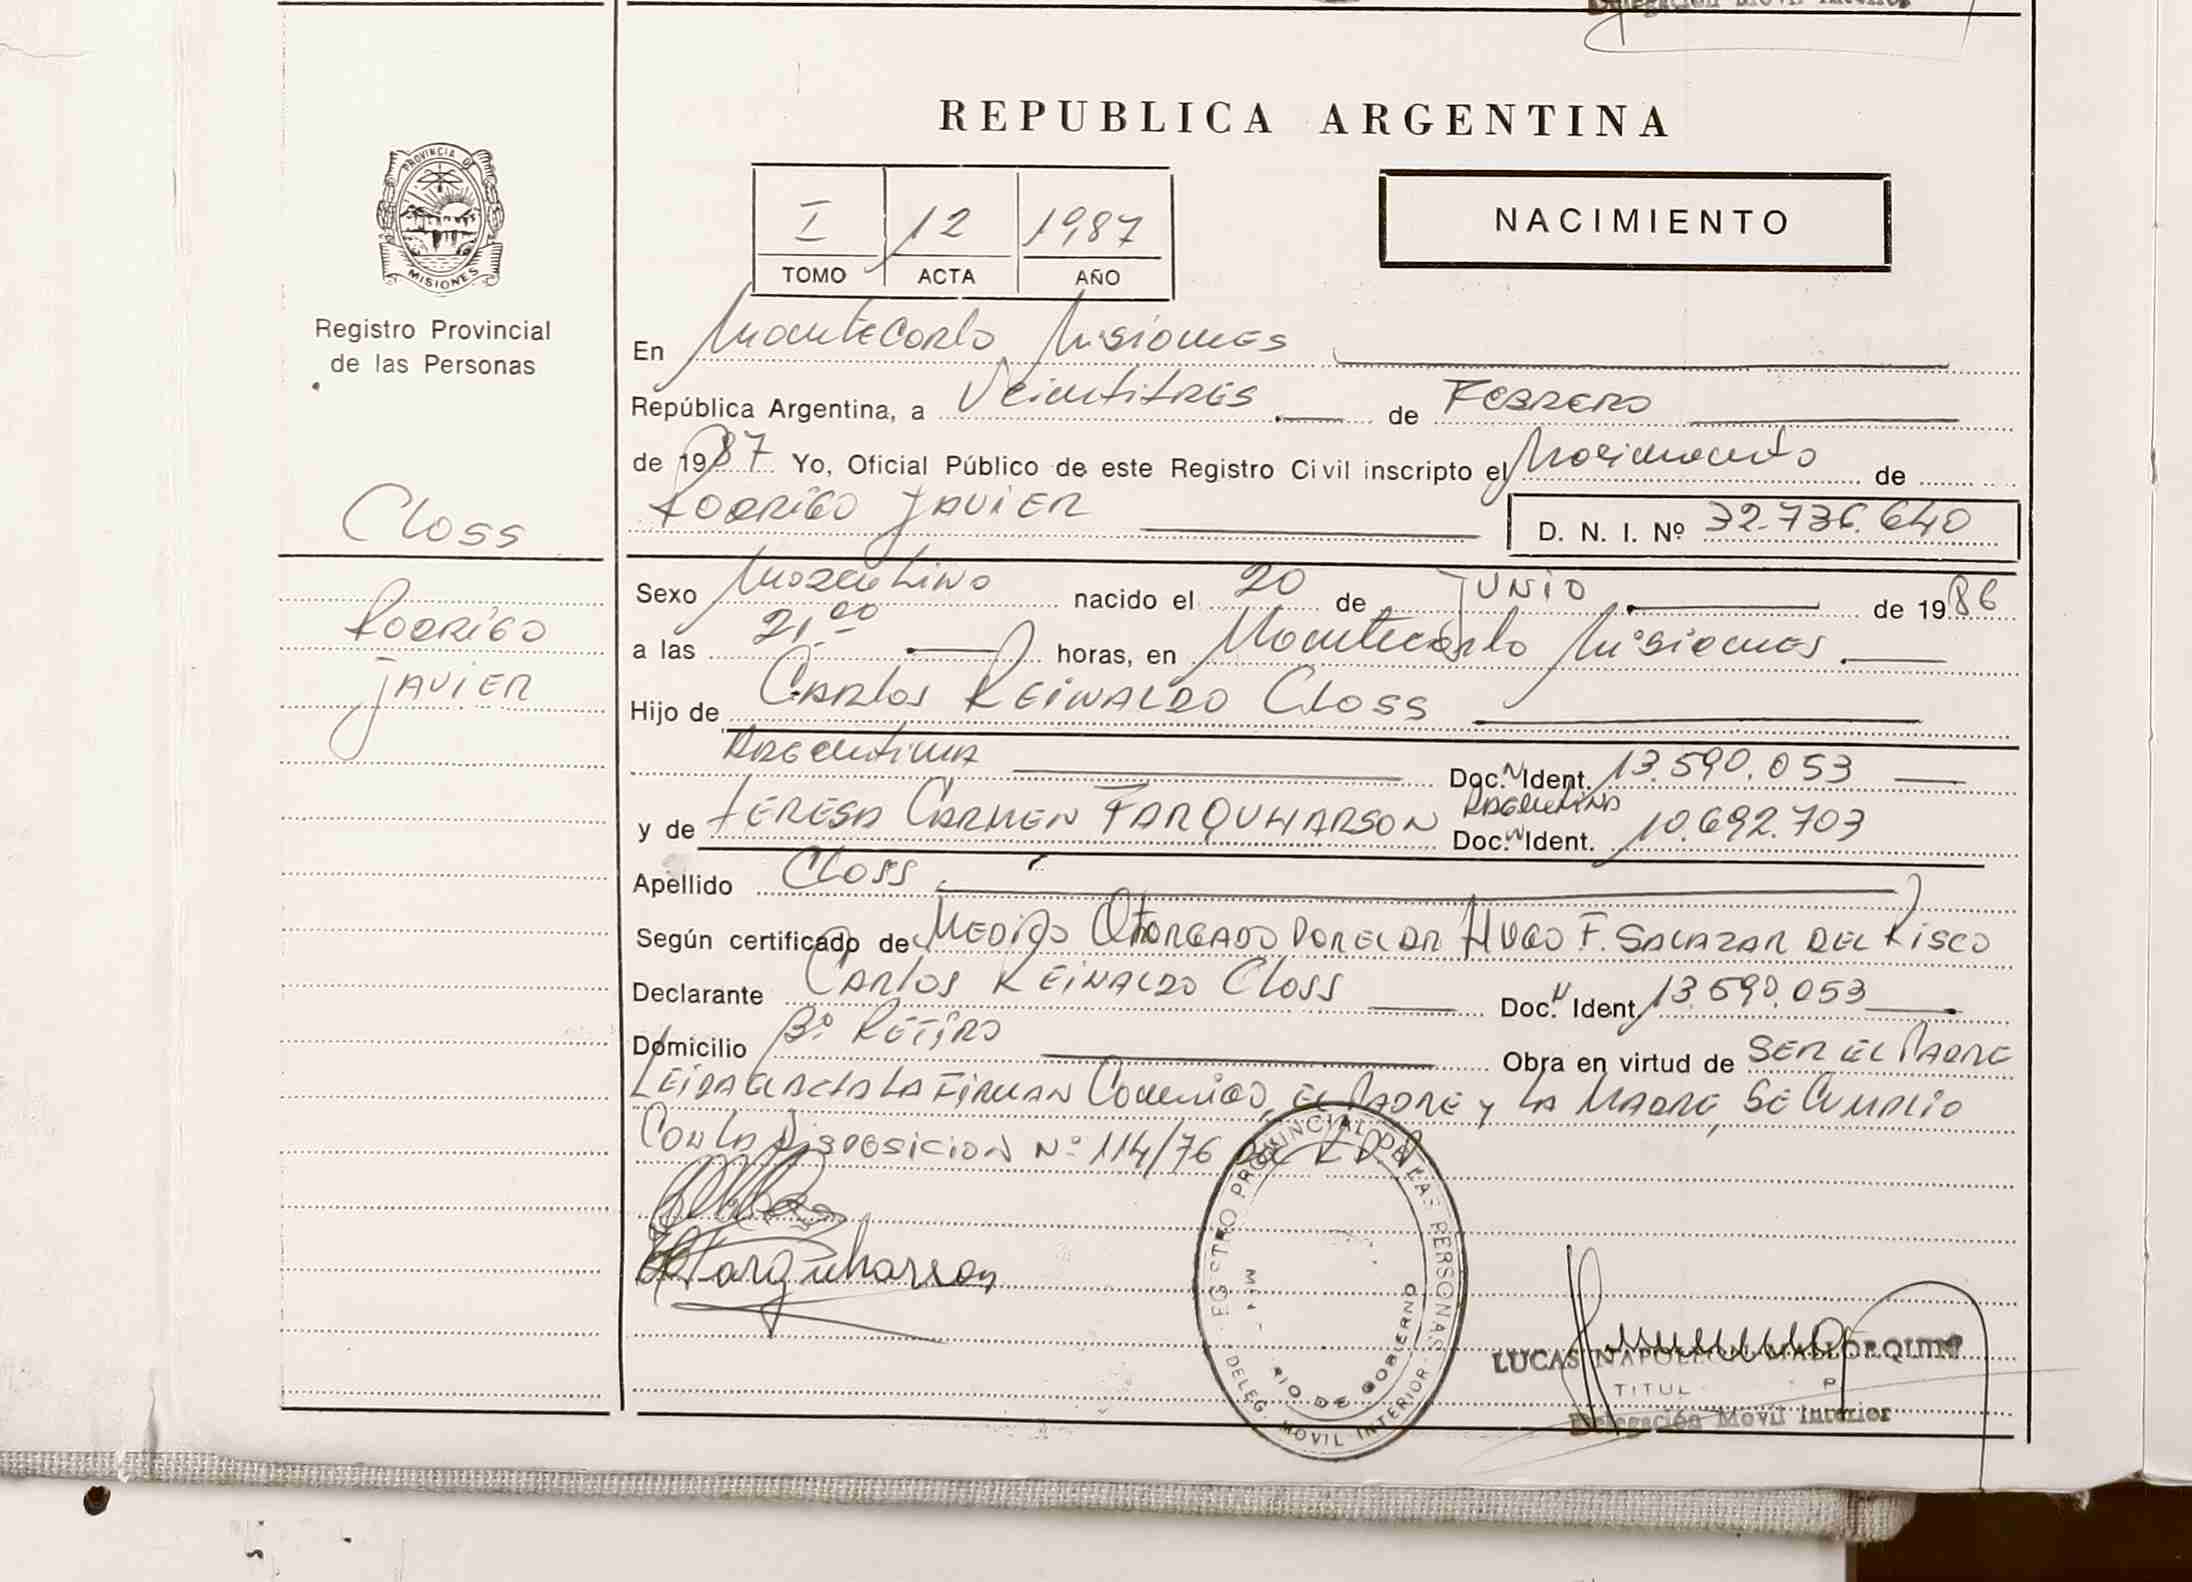 Delegación Movil Interior
REPUBLICA ARGENTINA
PROVINCIA DE
MISIONES
Registro Provincial
de las Personas
Closs
Rodrigo
Javier
I 12 1987
TOMO ACTA AÑO
NACIMIENTO
En Montecarlo Misiones
República Argentina, a Veintitres de Febrero
de 1987 Yo, Oficial Público de este Registro Civil inscripto el Nacimiento de
Rodrigo Javier D. N. I. Nº 32.736.640
Sexo Masculino nacido el 20 de Junio de 1986
a las 21,00 horas, en Montecarlo Misiones
Hijo de Carlos Reinaldo Closs
Argentina Doc. N Ident. 13.590.053
y de Teresa Carmen Farquharson Argentina Doc. N Ident. 10.692.703
Apellido Closs
Según certificado de Medico Otorgado por el Dr Hugo F. Salazar del Risco
Declarante Carlos Reinaldo Closs Doc. N Ident. 13.590.053
Domicilio Bº Retiro Obra en virtud de Ser el Padre
Leida el acta la Firman Conmigo, el Padre y la Madre, Se Cumplio
Con la Disposicion Nº 114/76 del R.P.P.
Farquharson
PROVINCIAL DE LAS PERSONAS
DELEG. MOVIL INTERIOR
DE GOBIERNO
LUCAS NAPOLEON
TITUL
Delegación Movil Interior